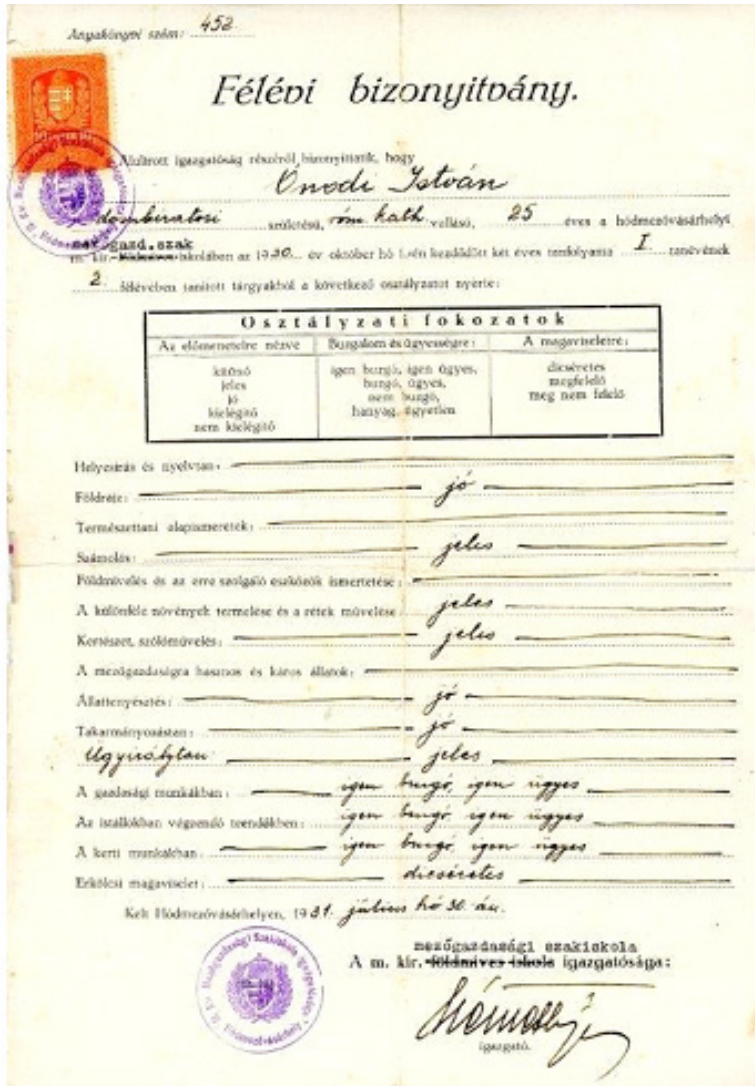 Anyakönyvi szám: 452.
Félévi bizonyitvány.
Alulirott igazgatóság részéről bizonyittatik, hogy
Ónodi István
dombiratosi születésü, róm. kath. vallásu, 25 éves a hódmezővásárhelyi
mezőgazd.szak
m. kir. földmives iskolában az 1930. év október hó 1-én kezdődött két éves tanfolyama I tanévének
2. félévében tanitott tárgyakból a következő osztályzatot nyerte:
Osztályzati fokozatok
Az előmenetelre nézve
Burgalom és ügyességre:
A magaviseletre:
kitünő
jeles
jó
kielégitő
nem kielégitő
igen buzgó, igen ügyes,
buzgó, ügyes,
nem buzgó,
hanyag, ügyetlen
dicséretes
megfelelő
meg nem felelő
Helyesirás és nyelvtan:
Földrajz: jó
Természettani alapismeretek:
Számolás: jeles
Földmivelés és az erre szolgáló eszközök ismertetése:
A különféle növények termelése és a rétek művelése jeles
Kertészet, szőlőmüvelés: jeles
A mezőgazdaságra hasznos és káros állatok:
Állattenyésztés: jó
Takarmányozástan: jó
Ügyirálytan jeles
A gazdasági munkákban: igen buzgó, igen ügyes
Az istállókban végzendő teendőkben: igen buzgó, igen ügyes
A kerti munkákban: igen buzgó, igen ügyes
Erkölcsi magaviselet: dicséretes
Kelt Hódmezővásárhelyen, 1931. július hó 30.-án.
mezőgazdasági szakiskola
A m. kir. földmives iskola igazgatósága:
igazgató.